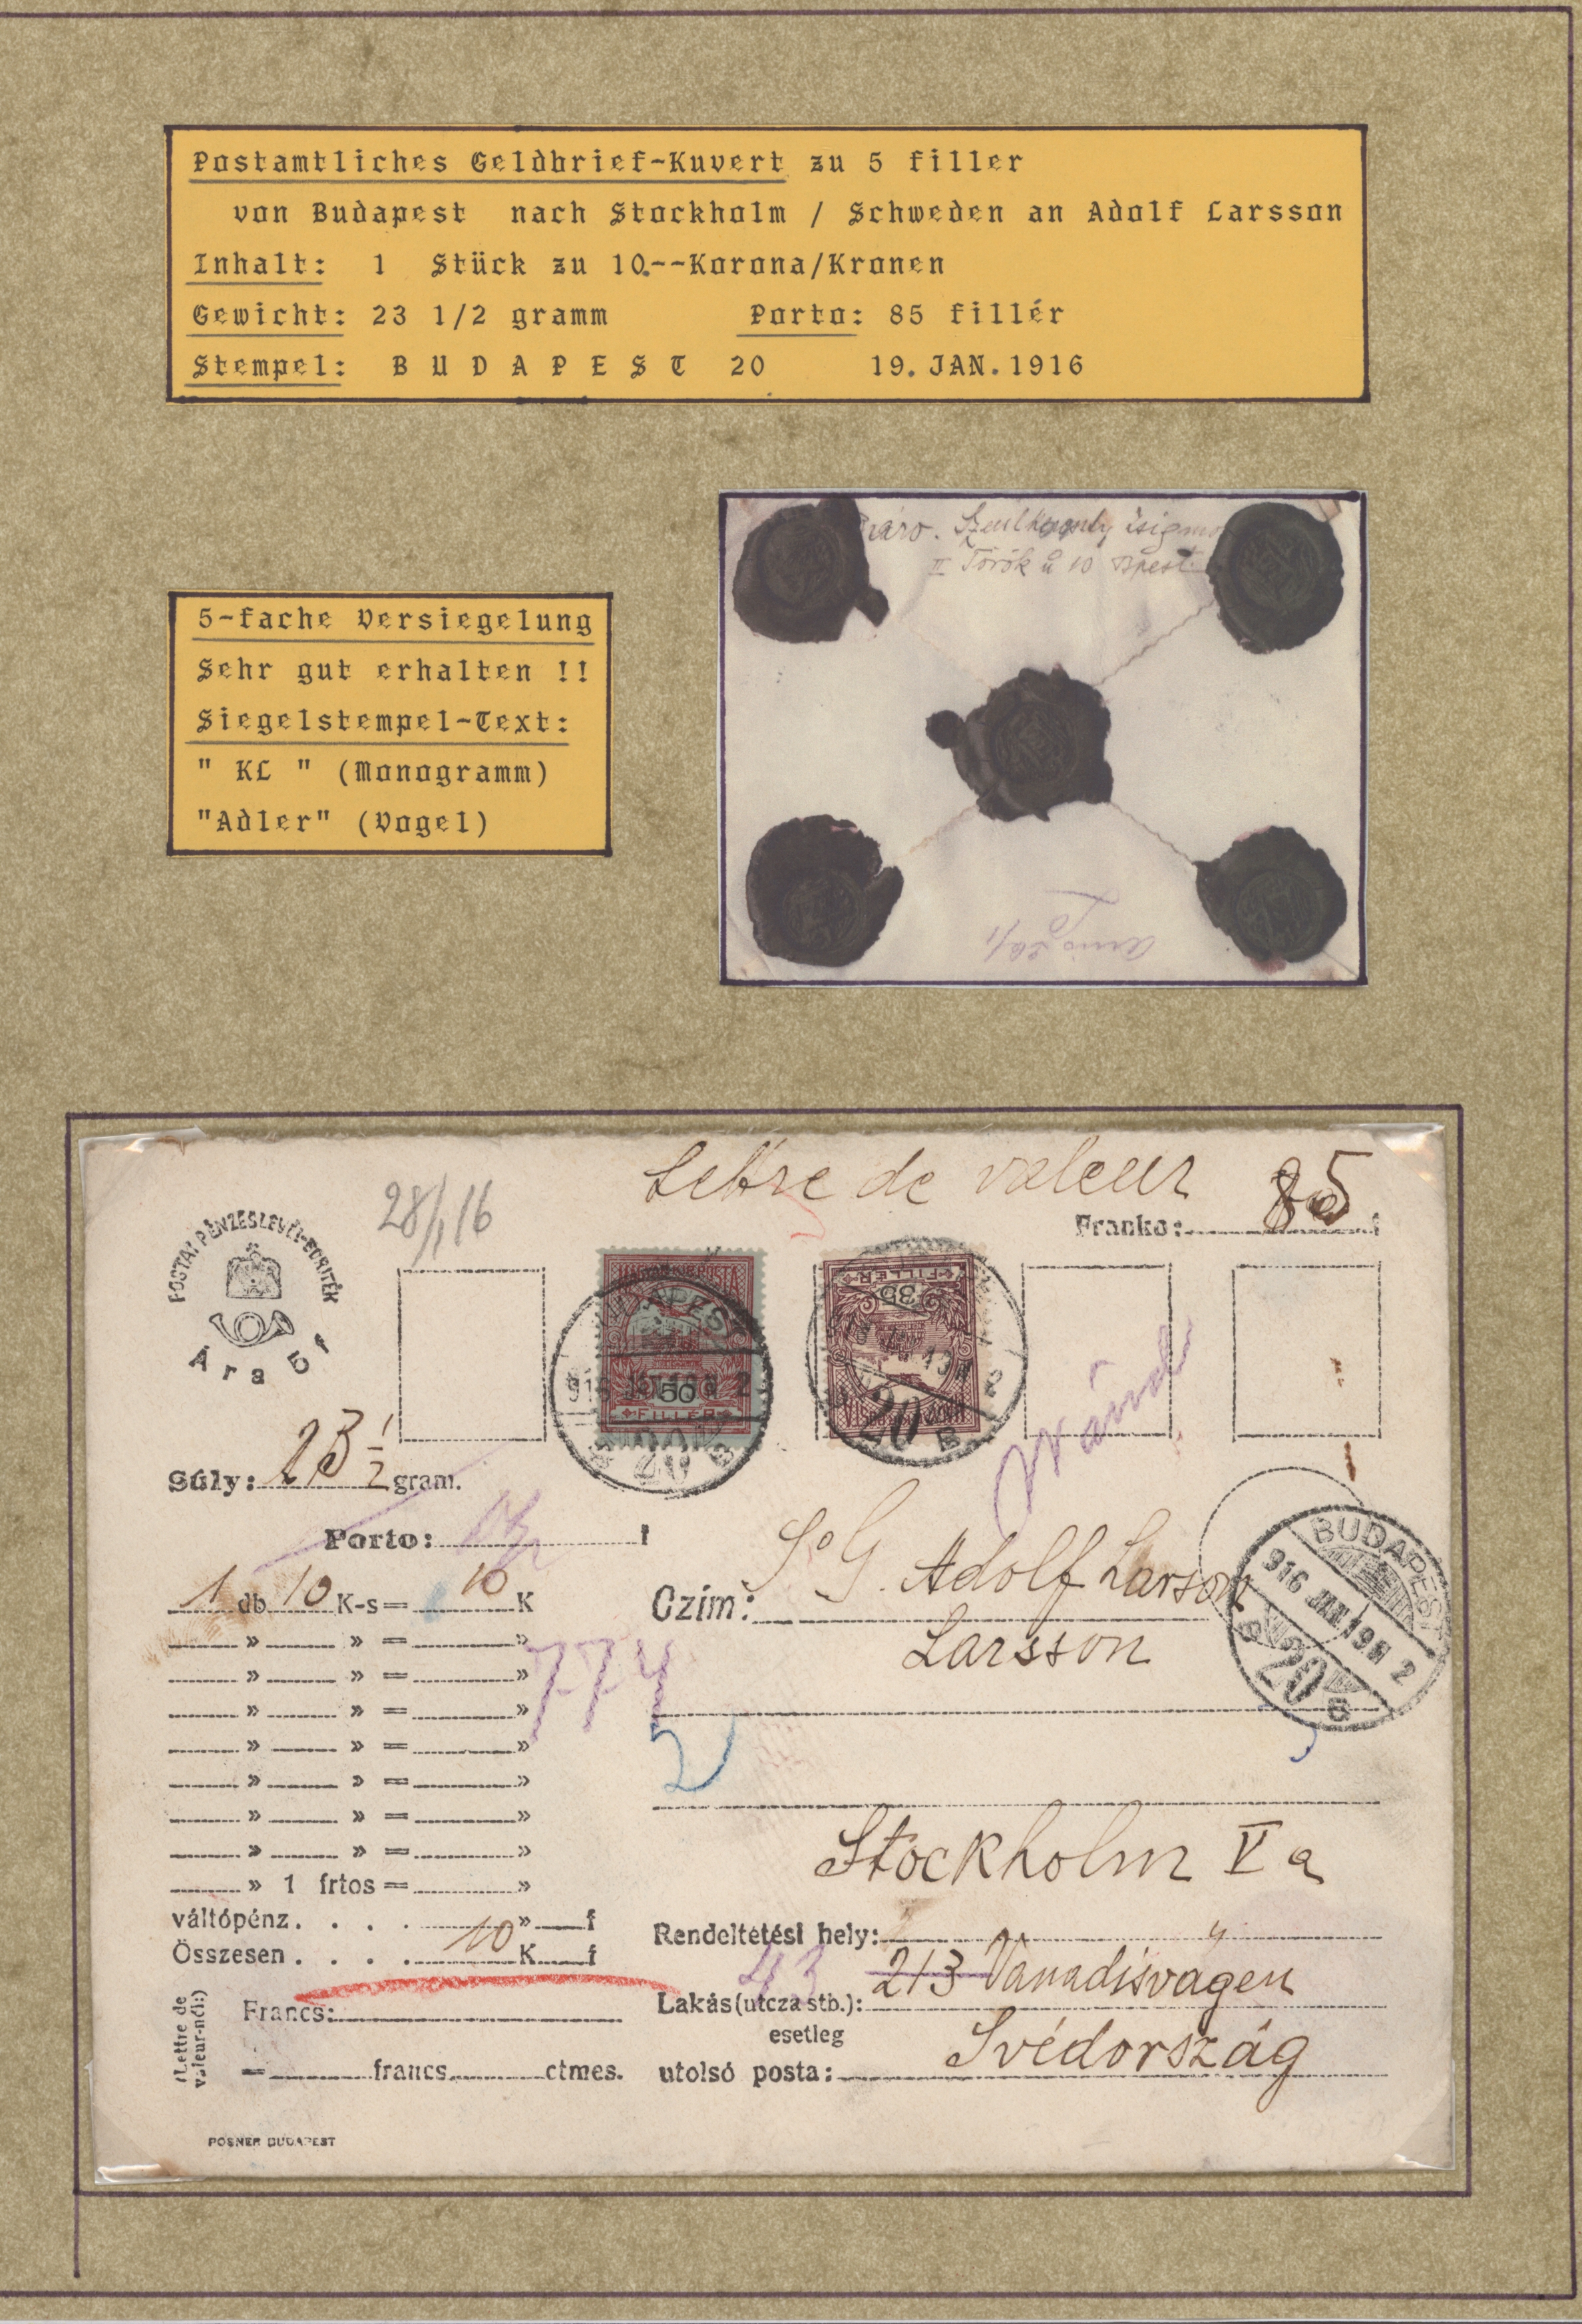 Postamtliches Geldbrief-Kuvert zu 5 filler
von Budapest nach Stockholm / Schweden an Adolf Larsson
Inhalt: 1 Stück zu 10.--Korona/Kronen
Gewicht: 23 1/2 gramm Porto: 85 fillér
Stempel: B U D A P E S T 20 19.JAN.1916
II Török u 10 Bpest.
5-fache Versiegelung
Sehr gut erhalten !!
Siegelstempel-Text:
" KL " (Monogramm)
"Adler" (Vogel)
Lettre de valeur 85
28/1 16
Franko: f
POSTAI PÉNZESLEVÉL-BORITÉK
Ára 5 f
MAGYAR KIR. POSTA
50
FILLER
35
FILLER
BUDAPEST
916 JAN. 19 2
20 B
Súly: 23 1/2 gram.
Porto: f
1 db 10 K-s= 10 K
Czím: S. G. Adolf Larson
Larsson
BUDAPEST
916 JAN 19 2
20 B
» » = »
» » = »
» » = »
» » = »
» » = »
» » = »
» » = »
774
2
» 1 frtos = »
váltópénz. . . . » f
Összesen . . . . 10 K f
Stockholm Va
Rendeltetési hely:
43 213 Vanadisvägen
Lakás (utcza stb.):
esetleg
utolsó posta: Svédország
(Lettre de
valeur-nél:)
Francs:
= francs ctmes.
POSNER BUDAPEST